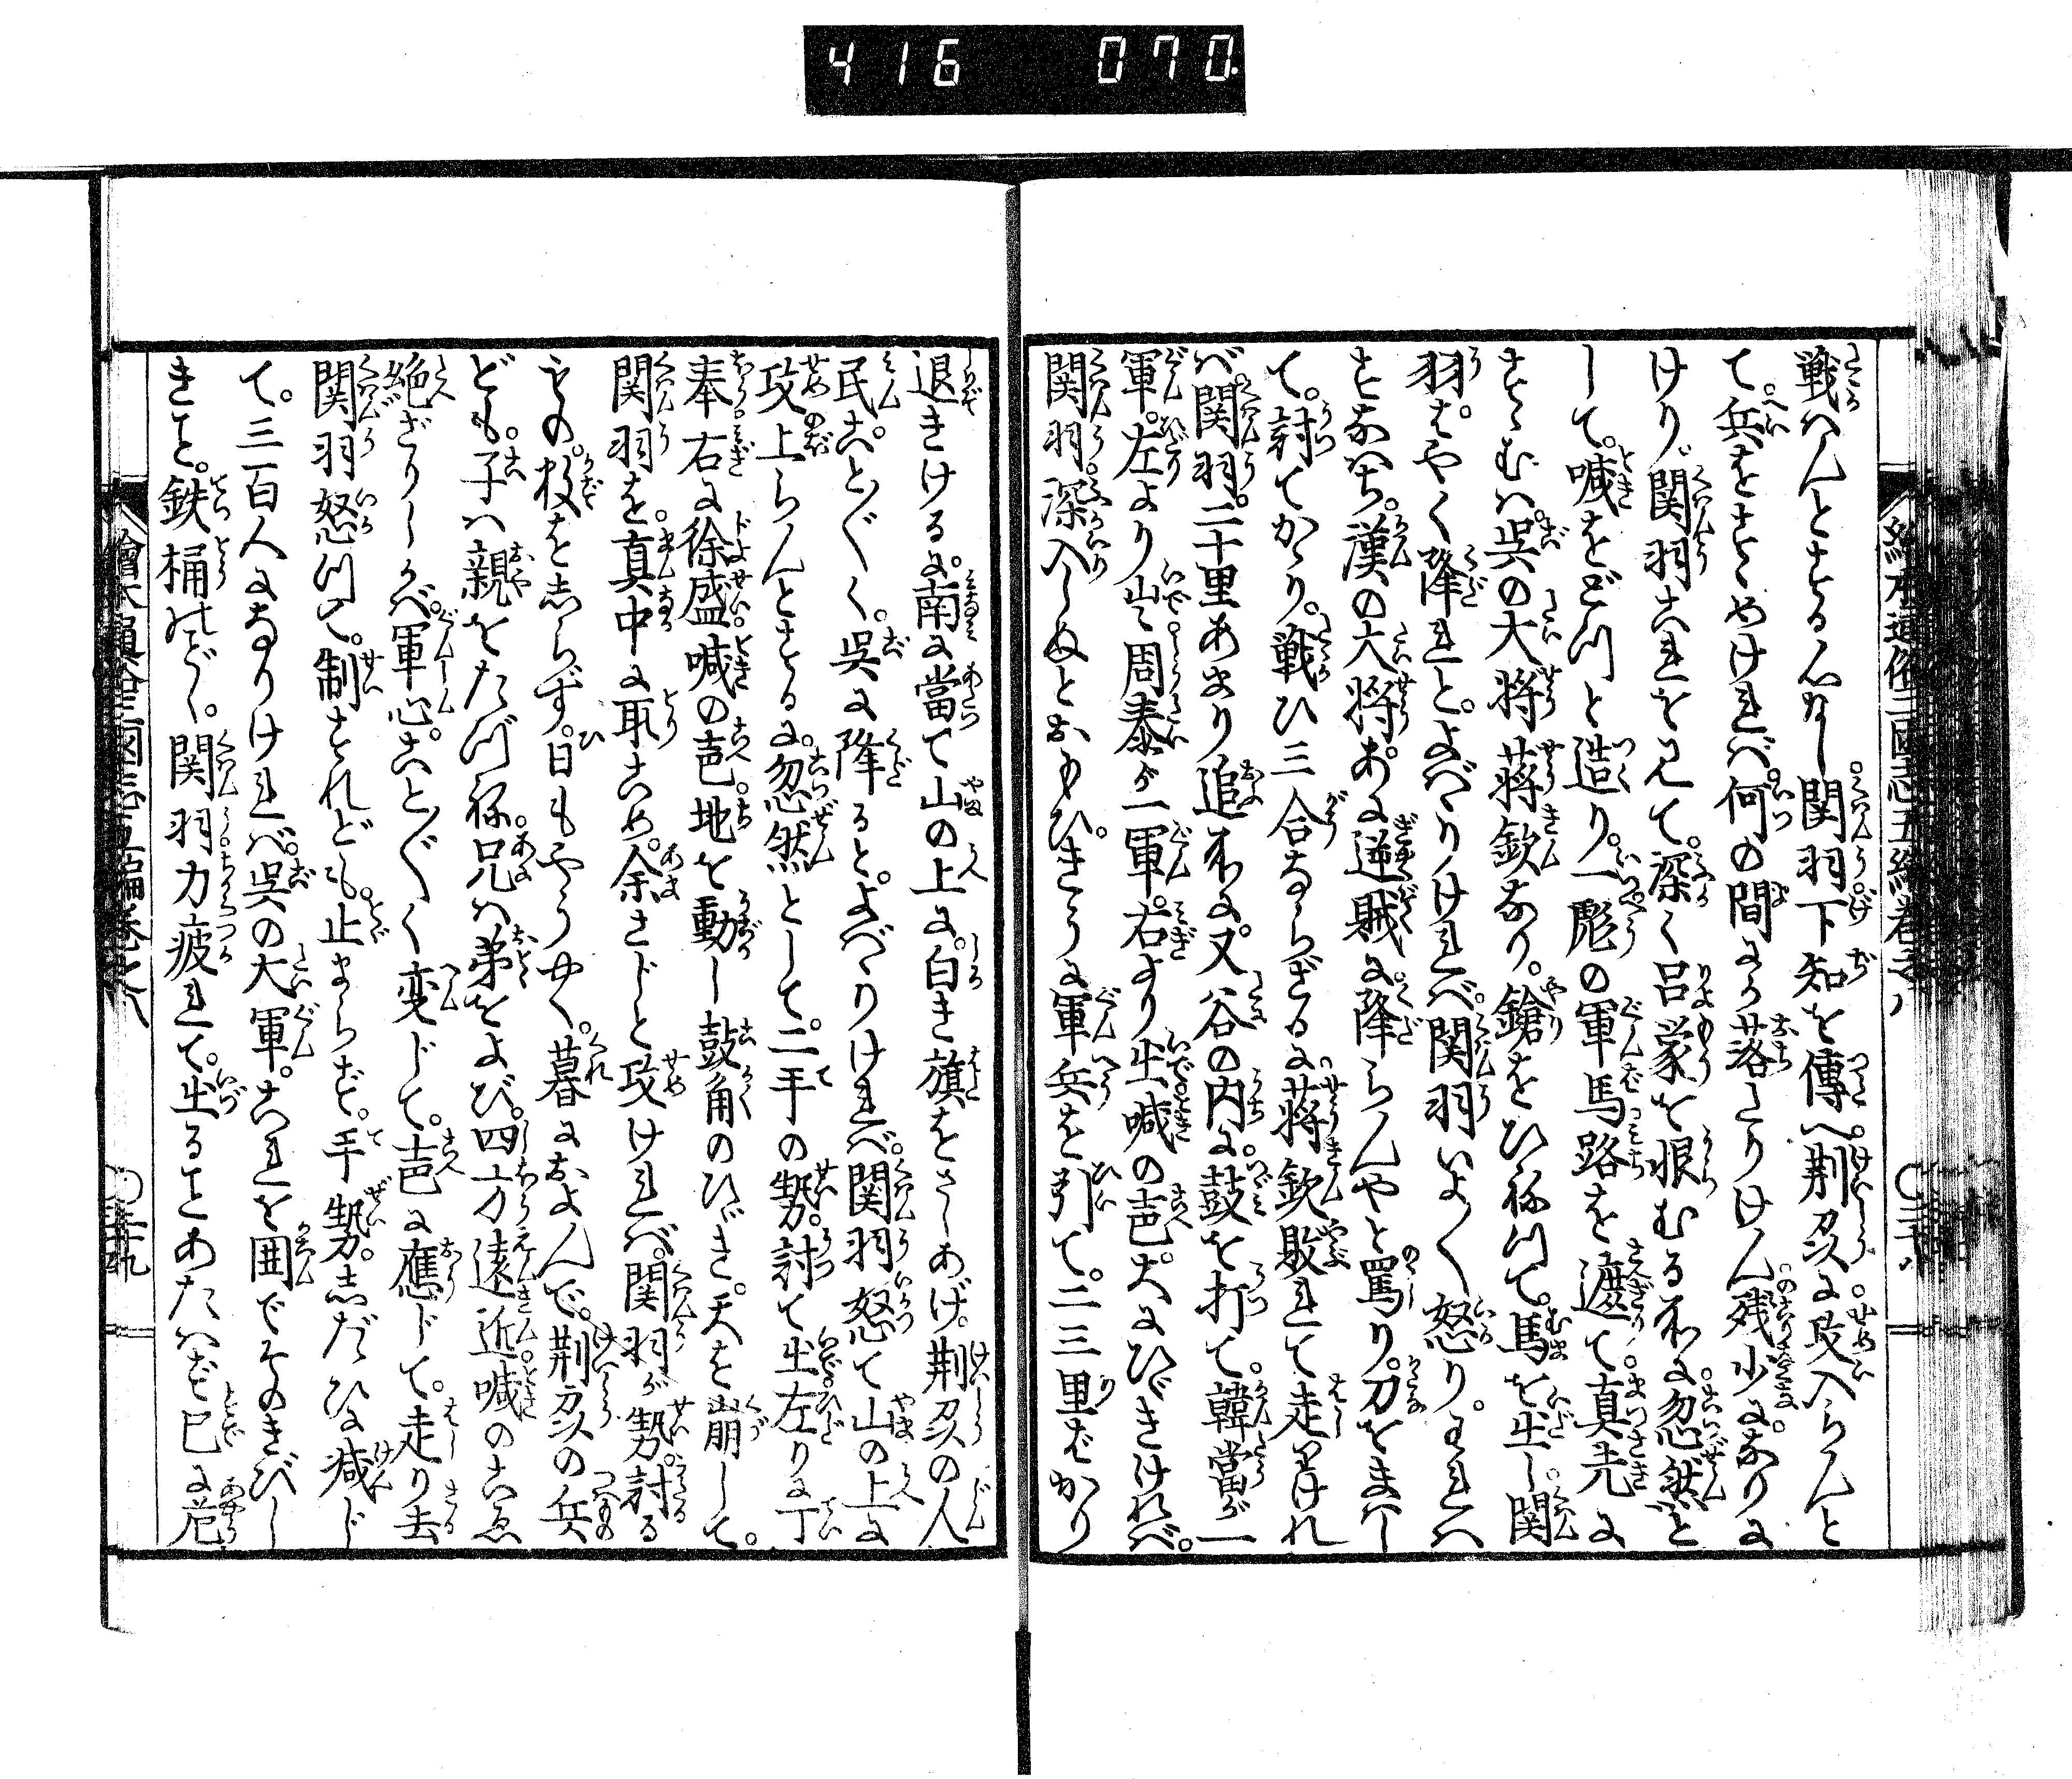 416 070
戦へんとする心なし。関羽下知を傳へ。荊州に攻入らんと
て。兵をすゝめければ。何の間にか落たりけん。残少になりに
けり。関羽これを見て。深く呂蒙を恨むる処に。忽然と
して。喊をどつと造り。一彪の軍馬路を遮て。真先に
すゝむは。呉の大将蒋欽なり。鎗をひねつて。馬を出し。関
羽。はやく降れと。よばゝりければ。関羽いよ〱怒り。われは
すなはち。漢の大将。あに逆賊に降らんやと罵り。刀をまはし
て。討てかゝり。戦ひ三合ならざるに。蒋欽敗れて走りけれ
ば。関羽。二十里あまり追処に。又谷の内に。鼓を打て。韓當が一
軍。左より出。周泰が一軍。右より出。喊の声。大にひゞきければ。
関羽。深入しぬとおもひ。きうに軍兵を引て。二三里ばかり
退きけるに。南に當て山の上に。白き旗をさしあげ。荊州の人
民こと〲く。呉に降ると。よばゝりければ。関羽怒て山の上に
攻上らんとするに。忽然として。二手の勢。討て出。左りに丁
奉。右に徐盛。喊の声。地を動し。鼓角のひゞき。天を崩して。
関羽を。真中に取こめ。余さじと攻ければ。関羽が勢。討る
もの。数をしらず。日もやうやく。暮におよんで。荊州の兵
ども。子は親をたづね。兄は弟をよび。四方遠近。喊のこゑ
絶ざりしかば。軍心。こと〲く変じて。声に應じて。走り去
関羽怒つて。制すれども。止まらず。手勢。しだひに減じ
て。三百人になりければ。呉の大軍。これを囲でそのきびし
きこと。鉄桶のごとく。関羽力疲れて。出ることあたはず已に危
繪本通俗三國志五編巻之八